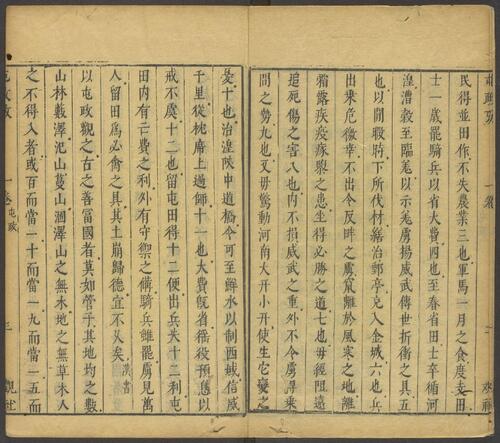 民得並田作不失農業三也軍馬一月之食度支田
士一歲罷騎兵以省大費四也至春省田士卒循河
湟漕穀至臨羌以示羌虜揚威武傳世折衝之具五
也以閒暇時下所伐材繕治郵亭充入金城六也兵
出乘危徼幸不出令反畔之虜竄離於風寒之地離
霜露疾疫瘃墮之患坐得必勝之道七也毋經阻遠
追死傷之害八也內不損威武之重外不令虜乘
間之勢九也又毋驚動河南大幵小幵使生它變之
憂十也治湟陿中道橋令可至鮮水以制西域信威
千里從枕席上過師十一也大費既省徭役預息以
戒不虞十二也留屯田得十二便出兵失十二利屯
田內有亡費之利外有守禦之備騎兵雖罷虜見萬
人留田為必禽之具其土崩歸德宜不久矣 漢書
以屯政觀之古之善富國者莫如管子其地均之數
山林藪澤汜山蔓山涸澤山之無木地之無草木人
之不得入者或百而當一十而當一九而當一五而
一卷 屯政 三 觀社